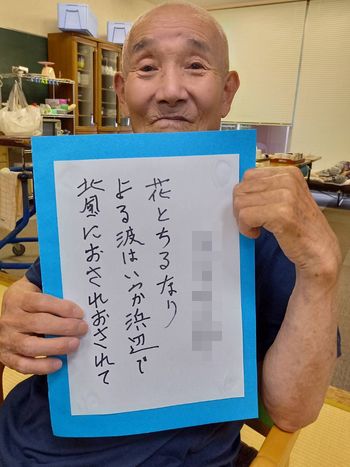 北風におされおされて
よる波はいつか浜辺で
花とちるなり